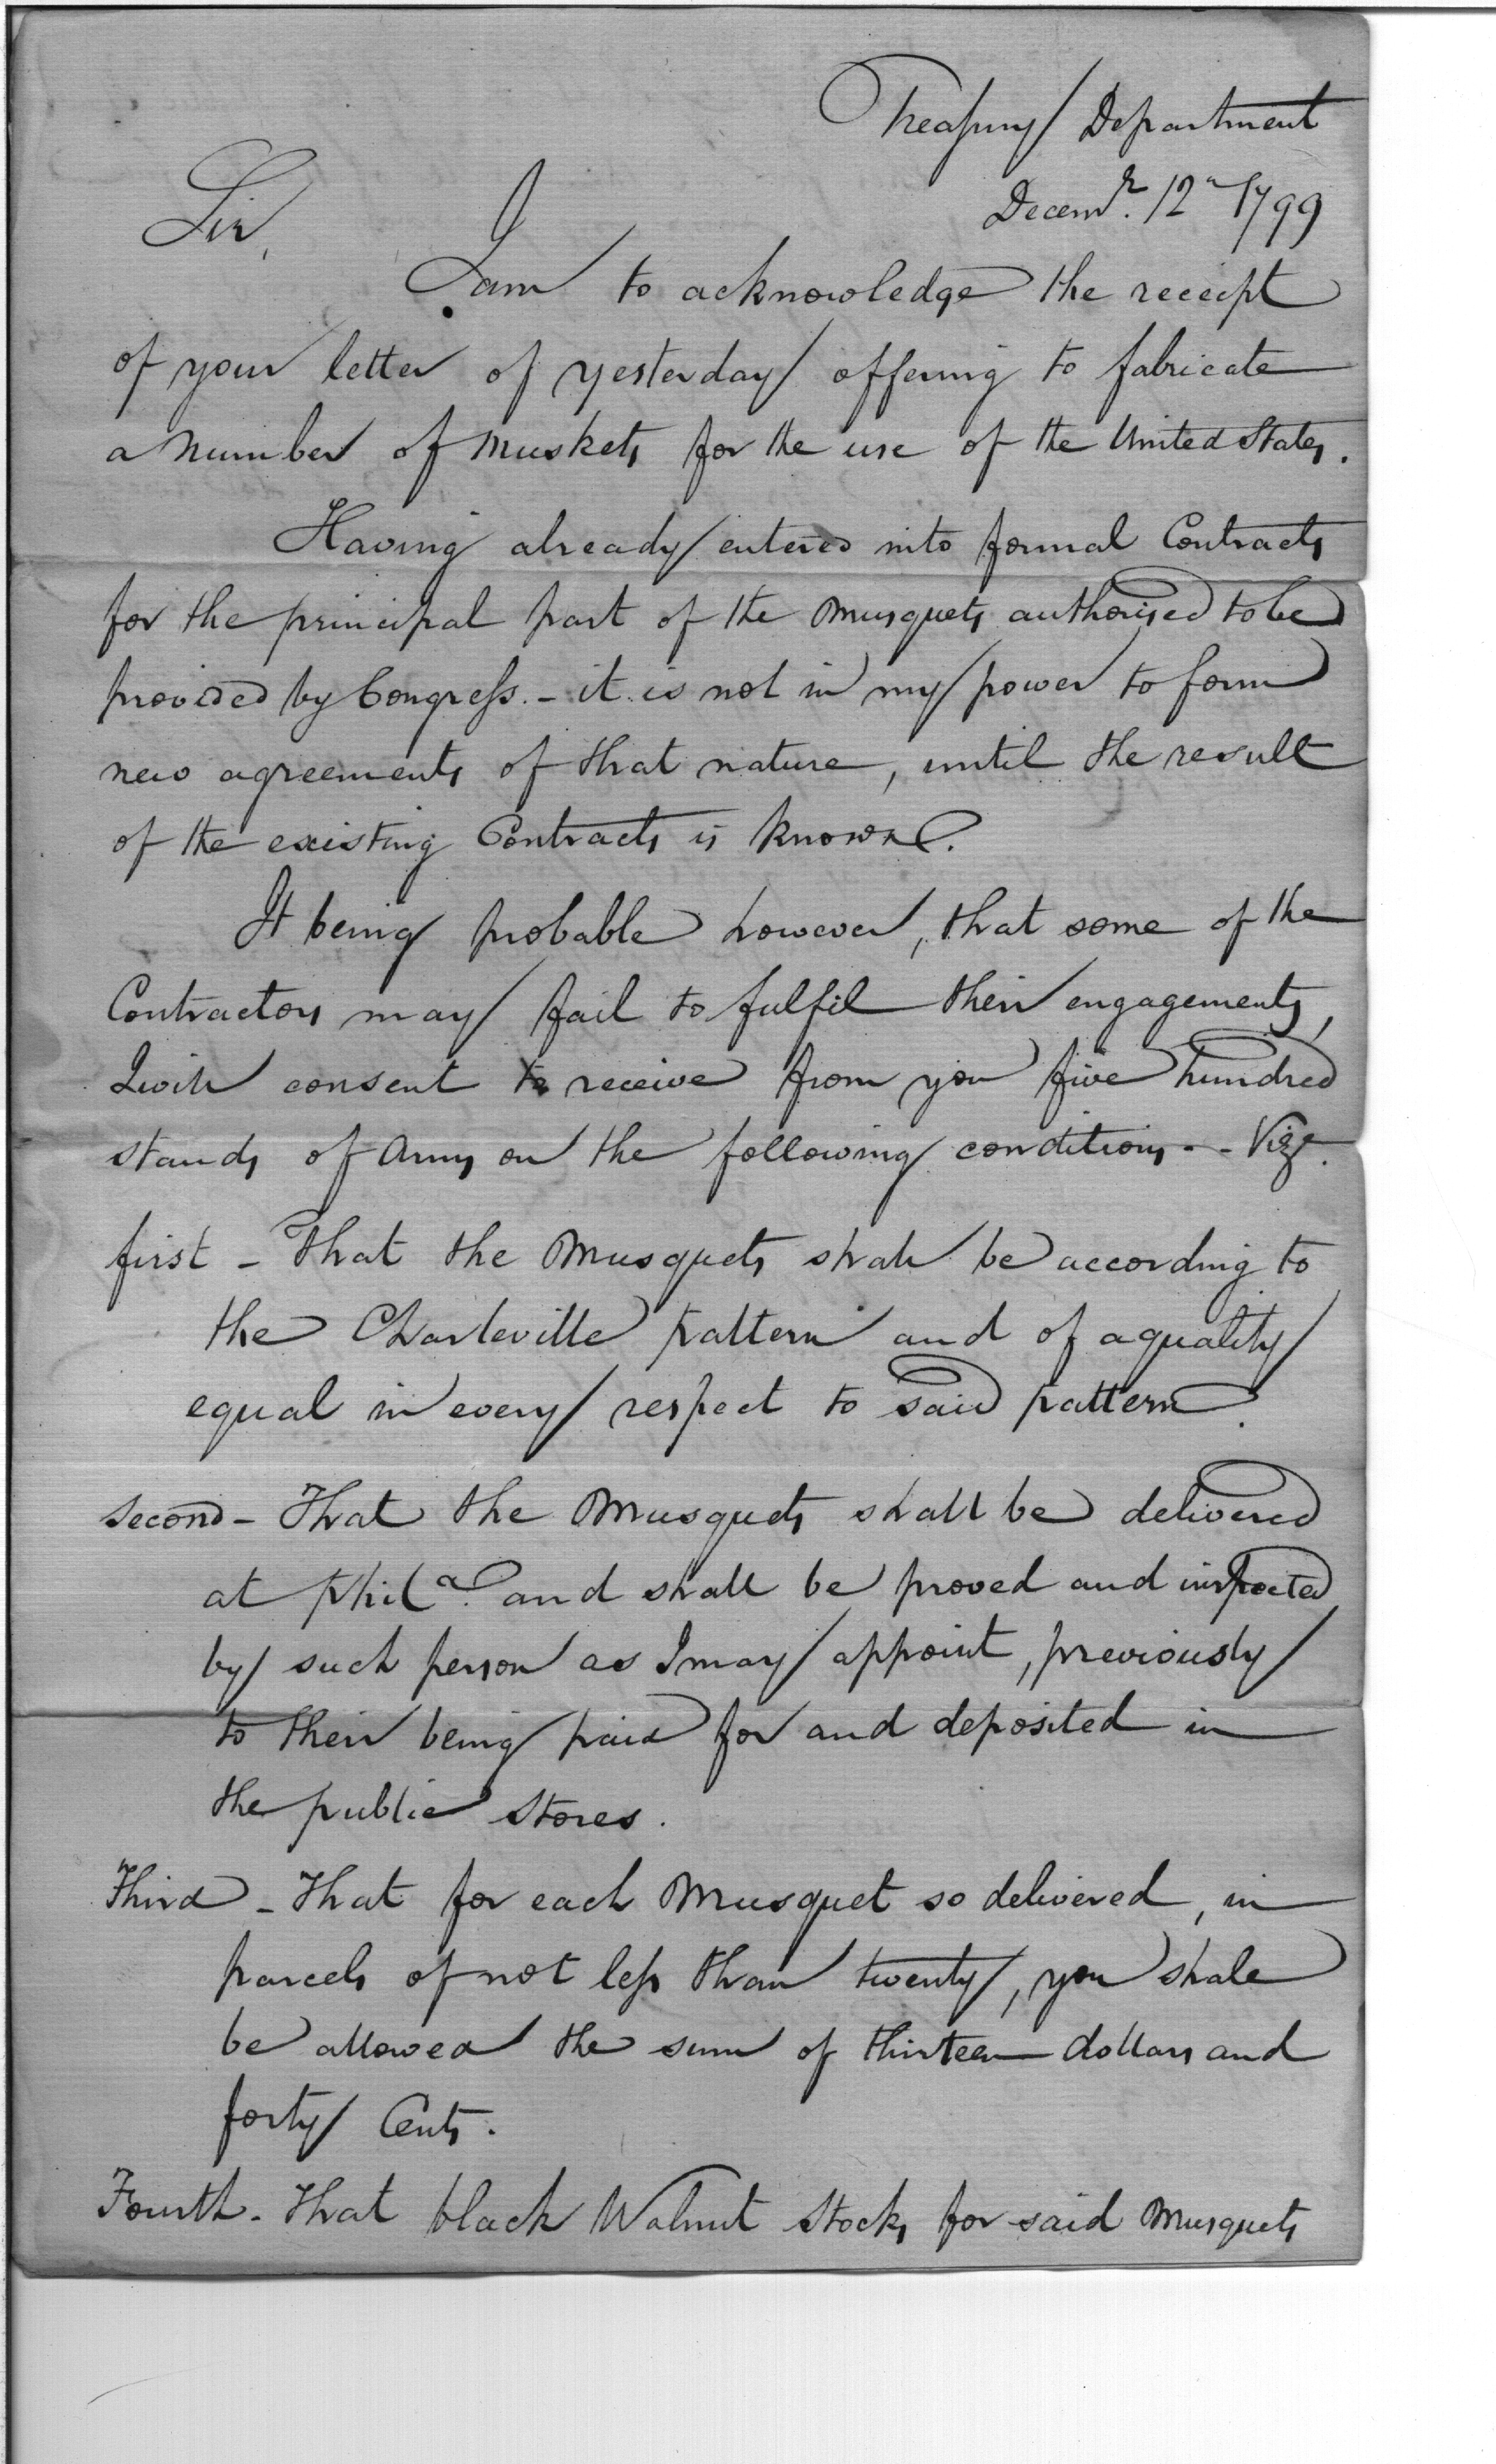 Treasury Department
Decemr. 12th 1799
Sir,
I am to acknowledge the receipt
of your letter of yesterday offering to fabricate
a number of muskets for the use of the United States.
Having already entered into formal Contracts
for the principal part of the Musquets authorised to be
provided by Congress. - it is not in my power to form
new agreements of that nature, until the result
of the existing Contracts is known.
It being probable however, that some of the
Contractors may fail to fulfil their engagements,
I will consent to receive from you five hundred
stands of Arms on the following conditions - - Vizt.
first - That the Musquets shall be according to
the Charleville pattern and of a quality
equal in every respect to said pattern.
second - That the Musquets shall be delivered
at Phila. and shall be proved and inspected
by such person as I may appoint, previously
to their being paid for and deposited in
the public stores.
Third - That for each Musquet so delivered, in
parcels of not less than twenty, you shall
be allowed the sum of thirteen dollars and
forty Cents.
Fourth - That black Walnut Stocks for said Musquets